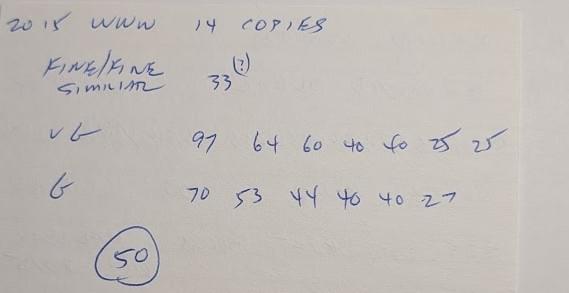 2015 WWW 14 COPIES
FINE/FINE
SIMILIAR 33 (?)
VG 97 64 60 40 40 25 25
G 70 53 44 40 40 27
50